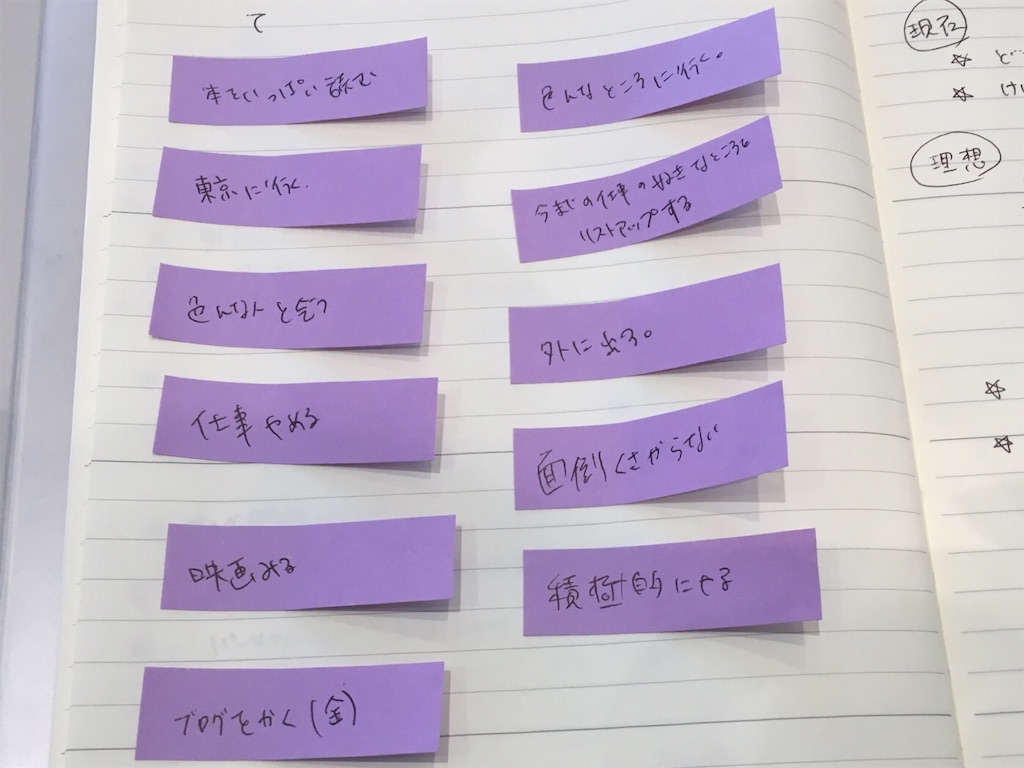 て
本をいっぱい読む
東京に行く.
色んな人と会う
仕事やめる
映画みる
ブログをかく(金)
色んなところに行く。
今までの仕事の好きなところを
リストアップする
外に出る。
面倒くさがらない
積極的にやる
現在
☆ ど
☆ けい
理想
☆
☆